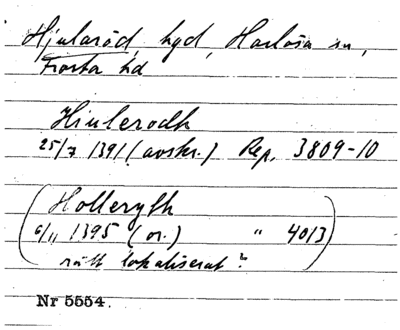 Hjularöd, hgd, Harlösa sn,
Frosta hd
Hiulerodh
25/7 1391 (avskr.) Rep. 3809-10
(Holleryth
6/11 1395 (or.) " 4013)
rätt lokaliserat?
Nr 5554.